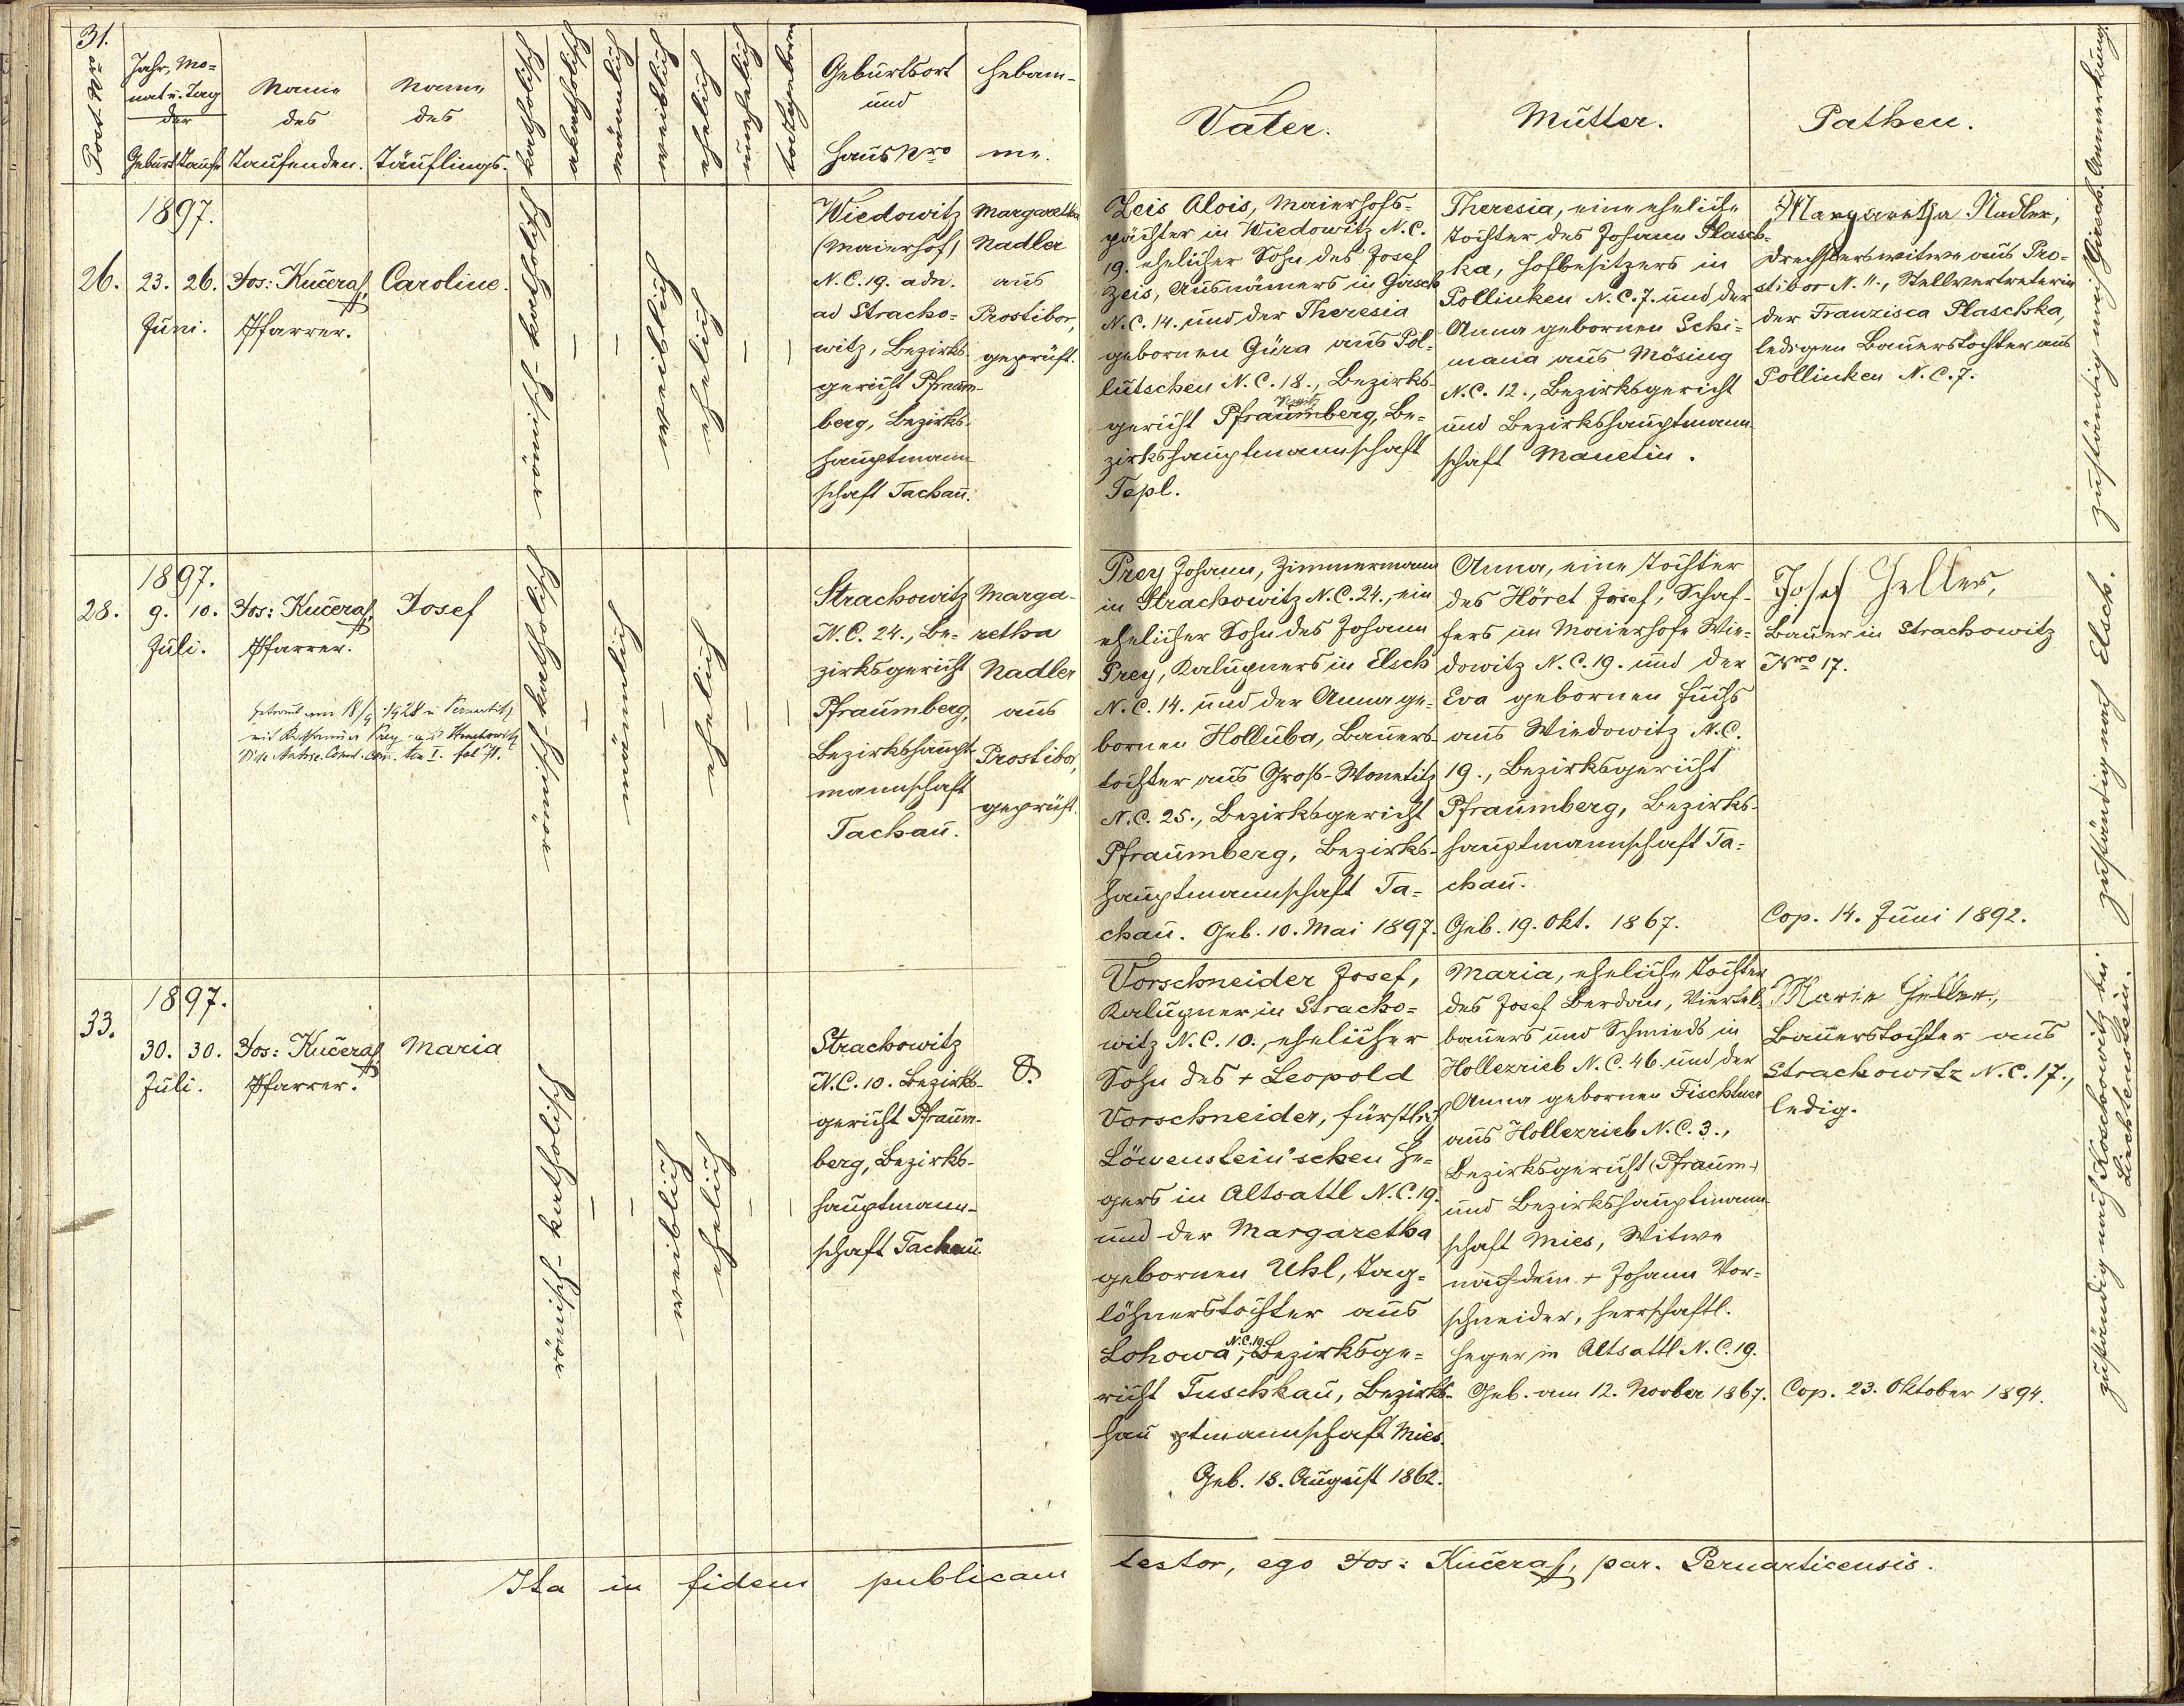 31.
Post-Nro
Jahr, Mo-
nat u. Tag
der
Geburt
Taufe
Name
des
Taufenden.
Name
des
Täuflings.
katholisch
akatholisch
männlich
weiblich
ehelich
unehelich
todtgeboren
Geburtsort
und
Haus Nro
Hebam-
me.
Vater.
Mutter.
Pathen.
Anmerkung.
26.
1897.
23. 26.
Juni.
Jos: Kučera,
Pfarrer.
Caroline.
römisch-katholisch
weiblich
ehelich
Wiedowitz
(Maierhof)
N.C. 19. adn.
ad Stracho-
witz, Bezirks-
gericht Pfraum-
berg, Bezirks-
hauptmann-
schaft Tachau.
Margaretha
Nadler
aus
Prostibor,
geprüft.
Zeis Alois, Maierhofs-
pächter in Wiedowitz N.C.
19. ehelicher Sohn des Josef
Zeis, Ausnämers in Girsch
N.C. 14. und der Theresia
gebornen Güra aus Pol-
lutschen N.C. 18., Bezirks-
gericht Pfraumberg, Be-
zirkshauptmannschaft
Tepl.
Theresia, eine eheliche
Tochter des Johann Plasch-
ka, Hofbesitzers in
Pollinken N.C. 7. und der
Anna gebornen Schi-
mana aus Mösing
N.C. 12., Bezirksgericht
und Bezirkshauptmann-
schaft Manetin.
Margaretha Nadler,
Drechslerswitwe aus Pro-
stibor N. 11., Stellvertreterin
der Franzisca Plaschka,
ledigen Bauerstochter aus
Pollinken N.C. 7.
zuständig nach Girsch.
28.
1897.
9. 10.
Juli.
Jos: Kučera,
Pfarrer.
Josef
Getraut am 18/9 1928 in Pernartitz
mit Katharina Prey aus Strachowitz
römisch-katholisch
männlich
ehelich
Strachowitz
N.C. 24., Be-
zirksgericht
Pfraumberg,
Bezirkshaupt-
mannschaft
Tachau.
Marga-
retha
Nadler
aus
Prostibor,
geprüft.
Prey Johann, Zimmermann
in Strachowitz N.C. 24., ein
ehelicher Sohn des Johann
Prey, Kalupners in Elsch
N.C. 14. und der Anna ge-
bornen Holluba, Bauers-
tochter aus Groß-Wonetitz
N.C. 25., Bezirksgericht
Pfraumberg, Bezirks-
hauptmannschaft Ta-
chau. Geb. 10. Mai 1897.
Anna, eine Tochter
des Höret Josef, Schaf-
fers im Maierhofe Wie-
dowitz N.C. 19. und der
Eva gebornen Fuchs
aus Wiedowitz N.C.
19., Bezirksgericht
Pfraumberg, Bezirks-
hauptmannschaft Ta-
chau.
Geb. 19. Okt. 1867.
Josef Heller,
Bauer in Strachowitz
Nro 17.
Cop. 14. Juni 1892.
zuständig nach Elsch.
33.
1897.
30. 30.
Juli.
Jos: Kučera,
Pfarrer.
Maria
römisch-katholisch
weiblich
ehelich
Strachowitz
N.C. 10. Bezirks-
gericht Pfraum-
berg, Bezirks-
hauptmann-
schaft Tachau.
Vorschneider Josef,
Kalupner in Stracho-
witz N.C. 10., ehelicher
Sohn des + Leopold
Vorschneider, fürstlich
Löwenstein'schen He-
gers in Altsattl N.C. 19.
und der Margaretha
gebornen Uhl, Tag-
löhnerstochter aus
Lohowa N.C. 19., Bezirksge-
richt Tuschkau, Bezirks-
hauptmannschaft Mies.
Geb. 18. August 1862.
Maria, eheliche Tochter
des Josef Berdan, Viertel-
bauers und Schmieds in
Hollezrieb N.C. 46. und der
Anna gebornen Fischtner
aus Hollezrieb N.C. 3.,
Bezirksgericht (Pfraum-)
und Bezirkshauptmann-
schaft Mies, Witwe
nach dem + Johann Vor-
schneider, herrschaftl.
Heger in Altsattl N.C. 19.
Geb. am 12. Novber 1867.
Marie Heller,
Bauerstochter aus
Strachowitz N.C. 17.,
ledig.
Cop. 23. Oktober 1894.
zuständig nach Koschowitz bei
Liechtenstein.
Ita in fidem publicam testor, ego Jos: Kučera, par. Pernarticensis.